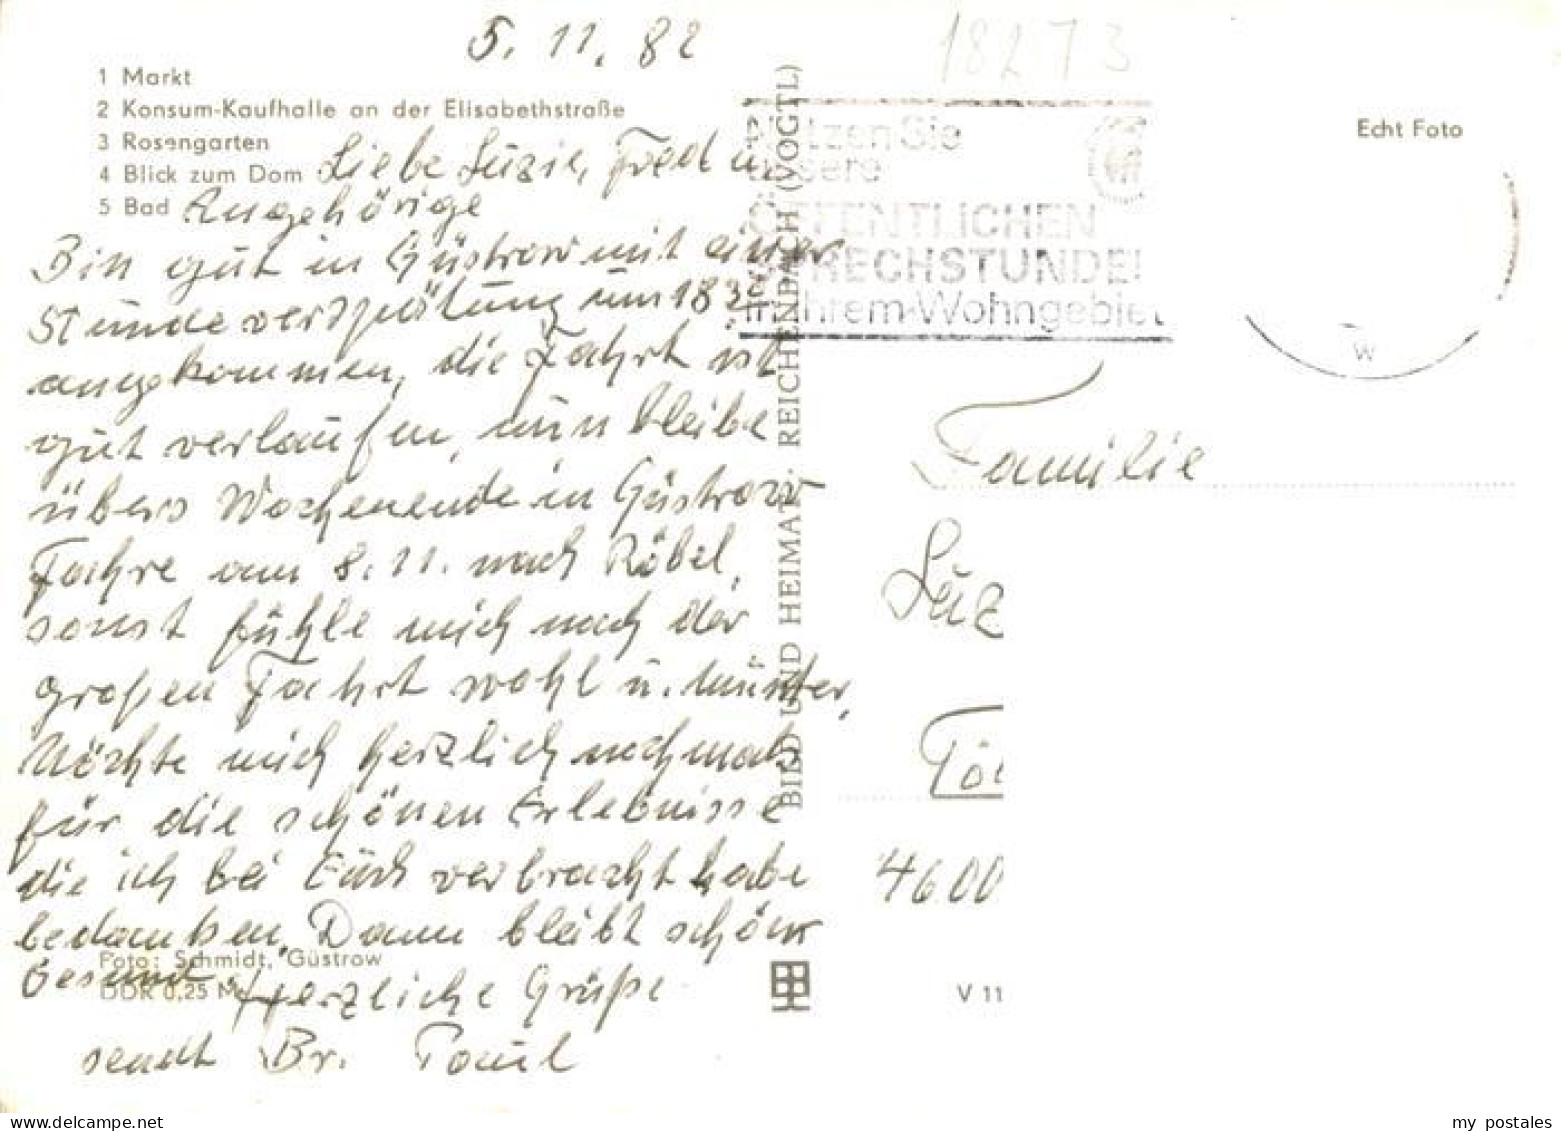 5. 11. 82
18273
1 Markt
2 Konsum-Kaufhalle an der Elisabethstraße
3 Rosengarten
4 Blick zum Dom
5 Bad
Liebe Luzie, Fred u.
Angehörige
Bin gut in Güstrow mit einer
Stunde verspätung um 18 32
angekommen, die Fahrt ist
gut verlaufen, nun bleibe
übers Wochenende in Güstrow
Fahre am 8. 11. nach Röbel,
sonst fühle mich nach der
großen Fahrt wohl u. munter,
Möchte mich herzlich nochmals
für die schönen Erlebnisse
die ich bei Euch verbracht habe
bedanken. Dann bleibt schön
Gesund. Herzliche Grüße
sendt Br. Paul
Foto: Schmidt, Güstrow
DDR 0,25 M
BILD UND HEIMAT · REICHENBACH (VOGTL)
Nutzen Sie
unsere
ÖFFENTLICHEN
SPRECHSTUNDEN
in Ihrem Wohngebiet
Echt Foto
W
Familie
Luz
4600
V 11
my postales